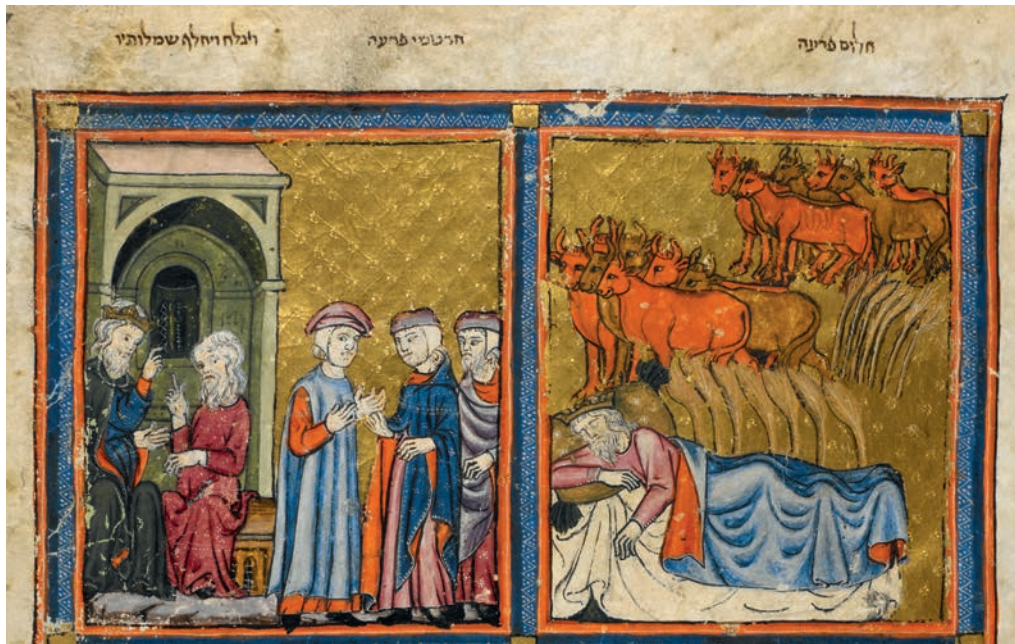 חלום פרעה
חרטמי פרעה
ויגלח ויחלף שמלותיו